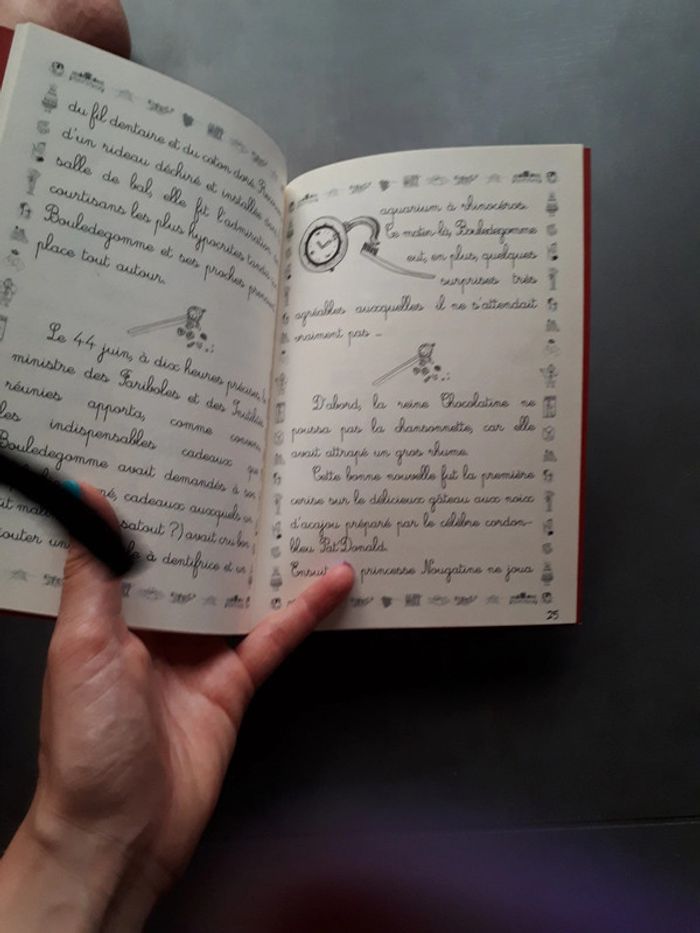 du fil dentaire et du coton doré.
d'un rideau déchiré et installée
salle de bal, elle fit l'admiration
courtisans les plus hypocrites tandis
Bouledegomme et ses proches
place tout autour.
Le 44 juin, à dix heures précises,
ministre des Fariboles et des
réunies apporta, comme
les indispensables cadeaux
Bouledegomme avait demandés à
cadeaux auxquels
satout ?) avait cru bon
à dentifrice et un
aquarium à rhinocéros.
Ce matin-là, Bouledegomme
eut, en plus, quelques
surprises très
agréables auxquelles il ne s'attendait
vraiment pas ...
D'abord, la reine Chocolatine ne
poussa pas la chansonnette, car elle
avait attrapé un gros rhume.
Cette bonne nouvelle fut la première
cerise sur le délicieux gâteau aux noix
d'acajou préparé par le célèbre cordon-
bleu Pat'Donald.
Ensuite princesse Nougatine ne joua
25